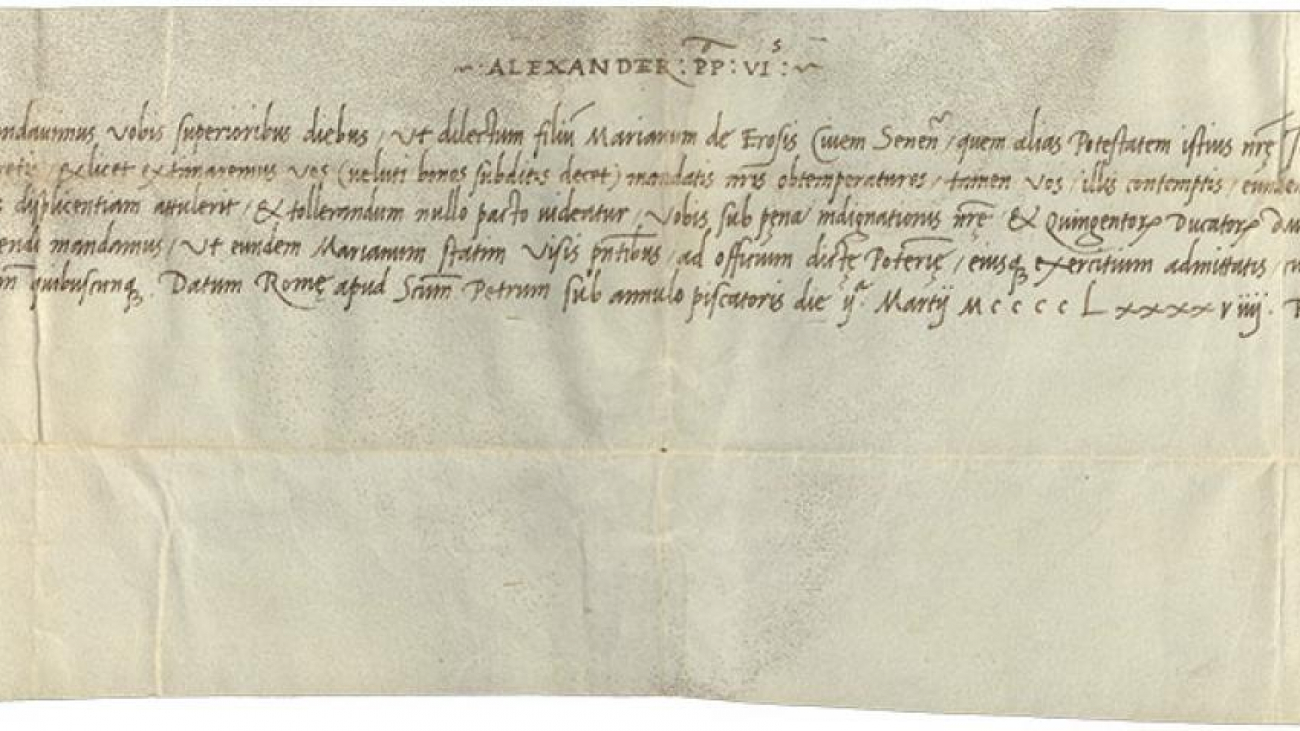 ALEXANDER : PP : VIˢ :
ndauimus vobis superioribus diebus / Vt dilectum filiū Marianum de Erosis Ciuem Seneñ / quem alias Potestatem istius nrę
& licet extimaremus vos (veluti bonos subditos decet) mandatis nris obtemperaturos / tamen vos / illis contemptis / eunde
displicentiam attulerit / & tollerandum nullo pacto uideatur / Vobis sub pęna indignationis nrę & Quingentorꝝ Ducatorꝝ
endi mandamus / Vt eundem Marianum statim Visis pntibus / ad officium dictę Poterię / eiusqꝫ exercitium admittatis /
quibuscunqꝫ. Datum Romę apud Scum Petrum sub annulo piscatoris die ijᵃ Martij M c c c c L x x x x v iiij .